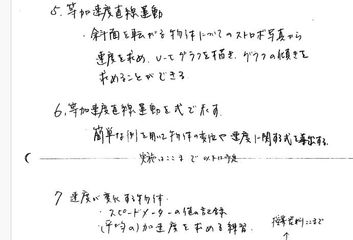 5. 等加速度直線運動
・斜面を転がる物体についてのストロボ写真から
速度を求め、v-tグラフを描き、グラフの傾きを
求めることができる。
6. 等加速度直線運動を式で表す
簡単な例を用いて物体の変位や速度に関する式を導出する。
ここまで
7 速度が変化する物体
・スピードメーターの値の記録
(平均の)加速度を求める練習.
ここまで
↑